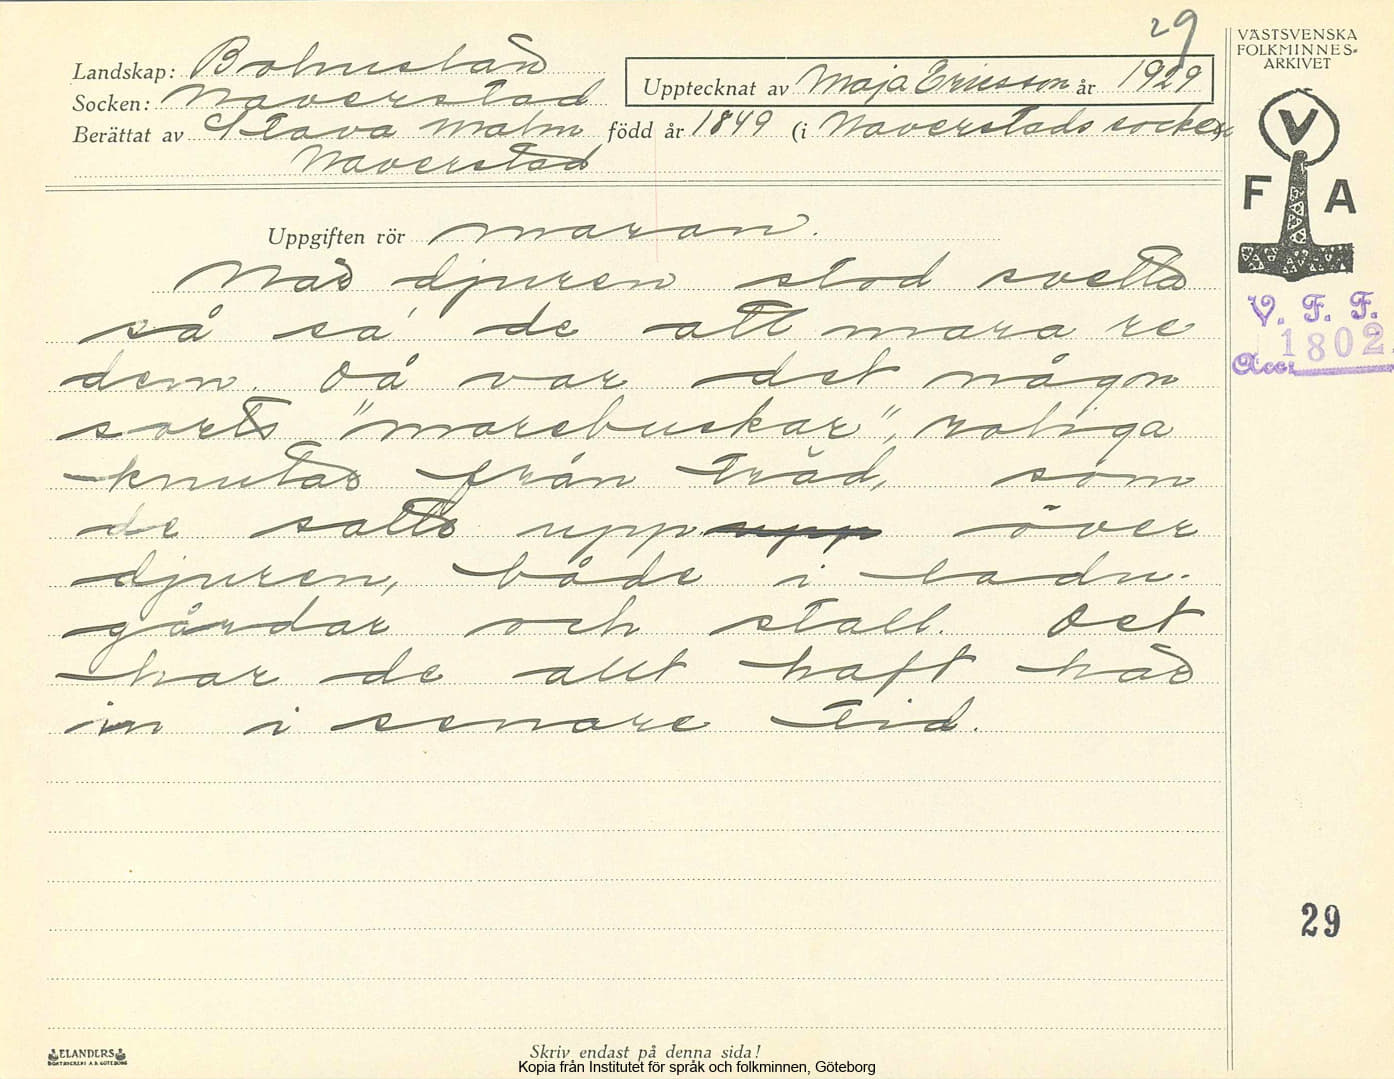 29
VÄSTSVENSKA
FOLKMINNES-
ARKIVET
Landskap: Bohuslän
Socken: Naverstad
Upptecknat av Maja Ericsson år 1929
Berättat av Stava Malm född år 1849 (i Naverstads socken)
Naverstad
V
F A
Uppgiften rör maran.
När djuren stod svetta
så sa' de att mara re
dem. Då var det någon
sorts "marebuskar", roliga
knutar från träd, som
de satte upp upp över
djuren, både i ladu-
gårdar och stall. Det
har de allt haft här
in i senare tid.
V. F. F.
Acc: 1802.
29
ELANDERS
BOKTRYCKERI A.B. GÖTEBORG
Skriv endast på denna sida!
Kopia från Institutet för språk och folkminnen, Göteborg